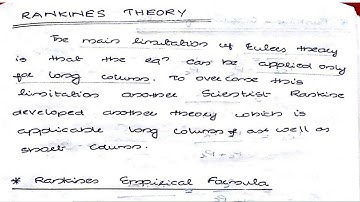 RANKINES THEORY
The main limitation of Eulers theory
is that the eqn can be applied only
for long column. To overcome this
limitation another Scientist Rankine
developed another theory which is
applicable long column & as well as
short column.
* Rankines Empirical Formula